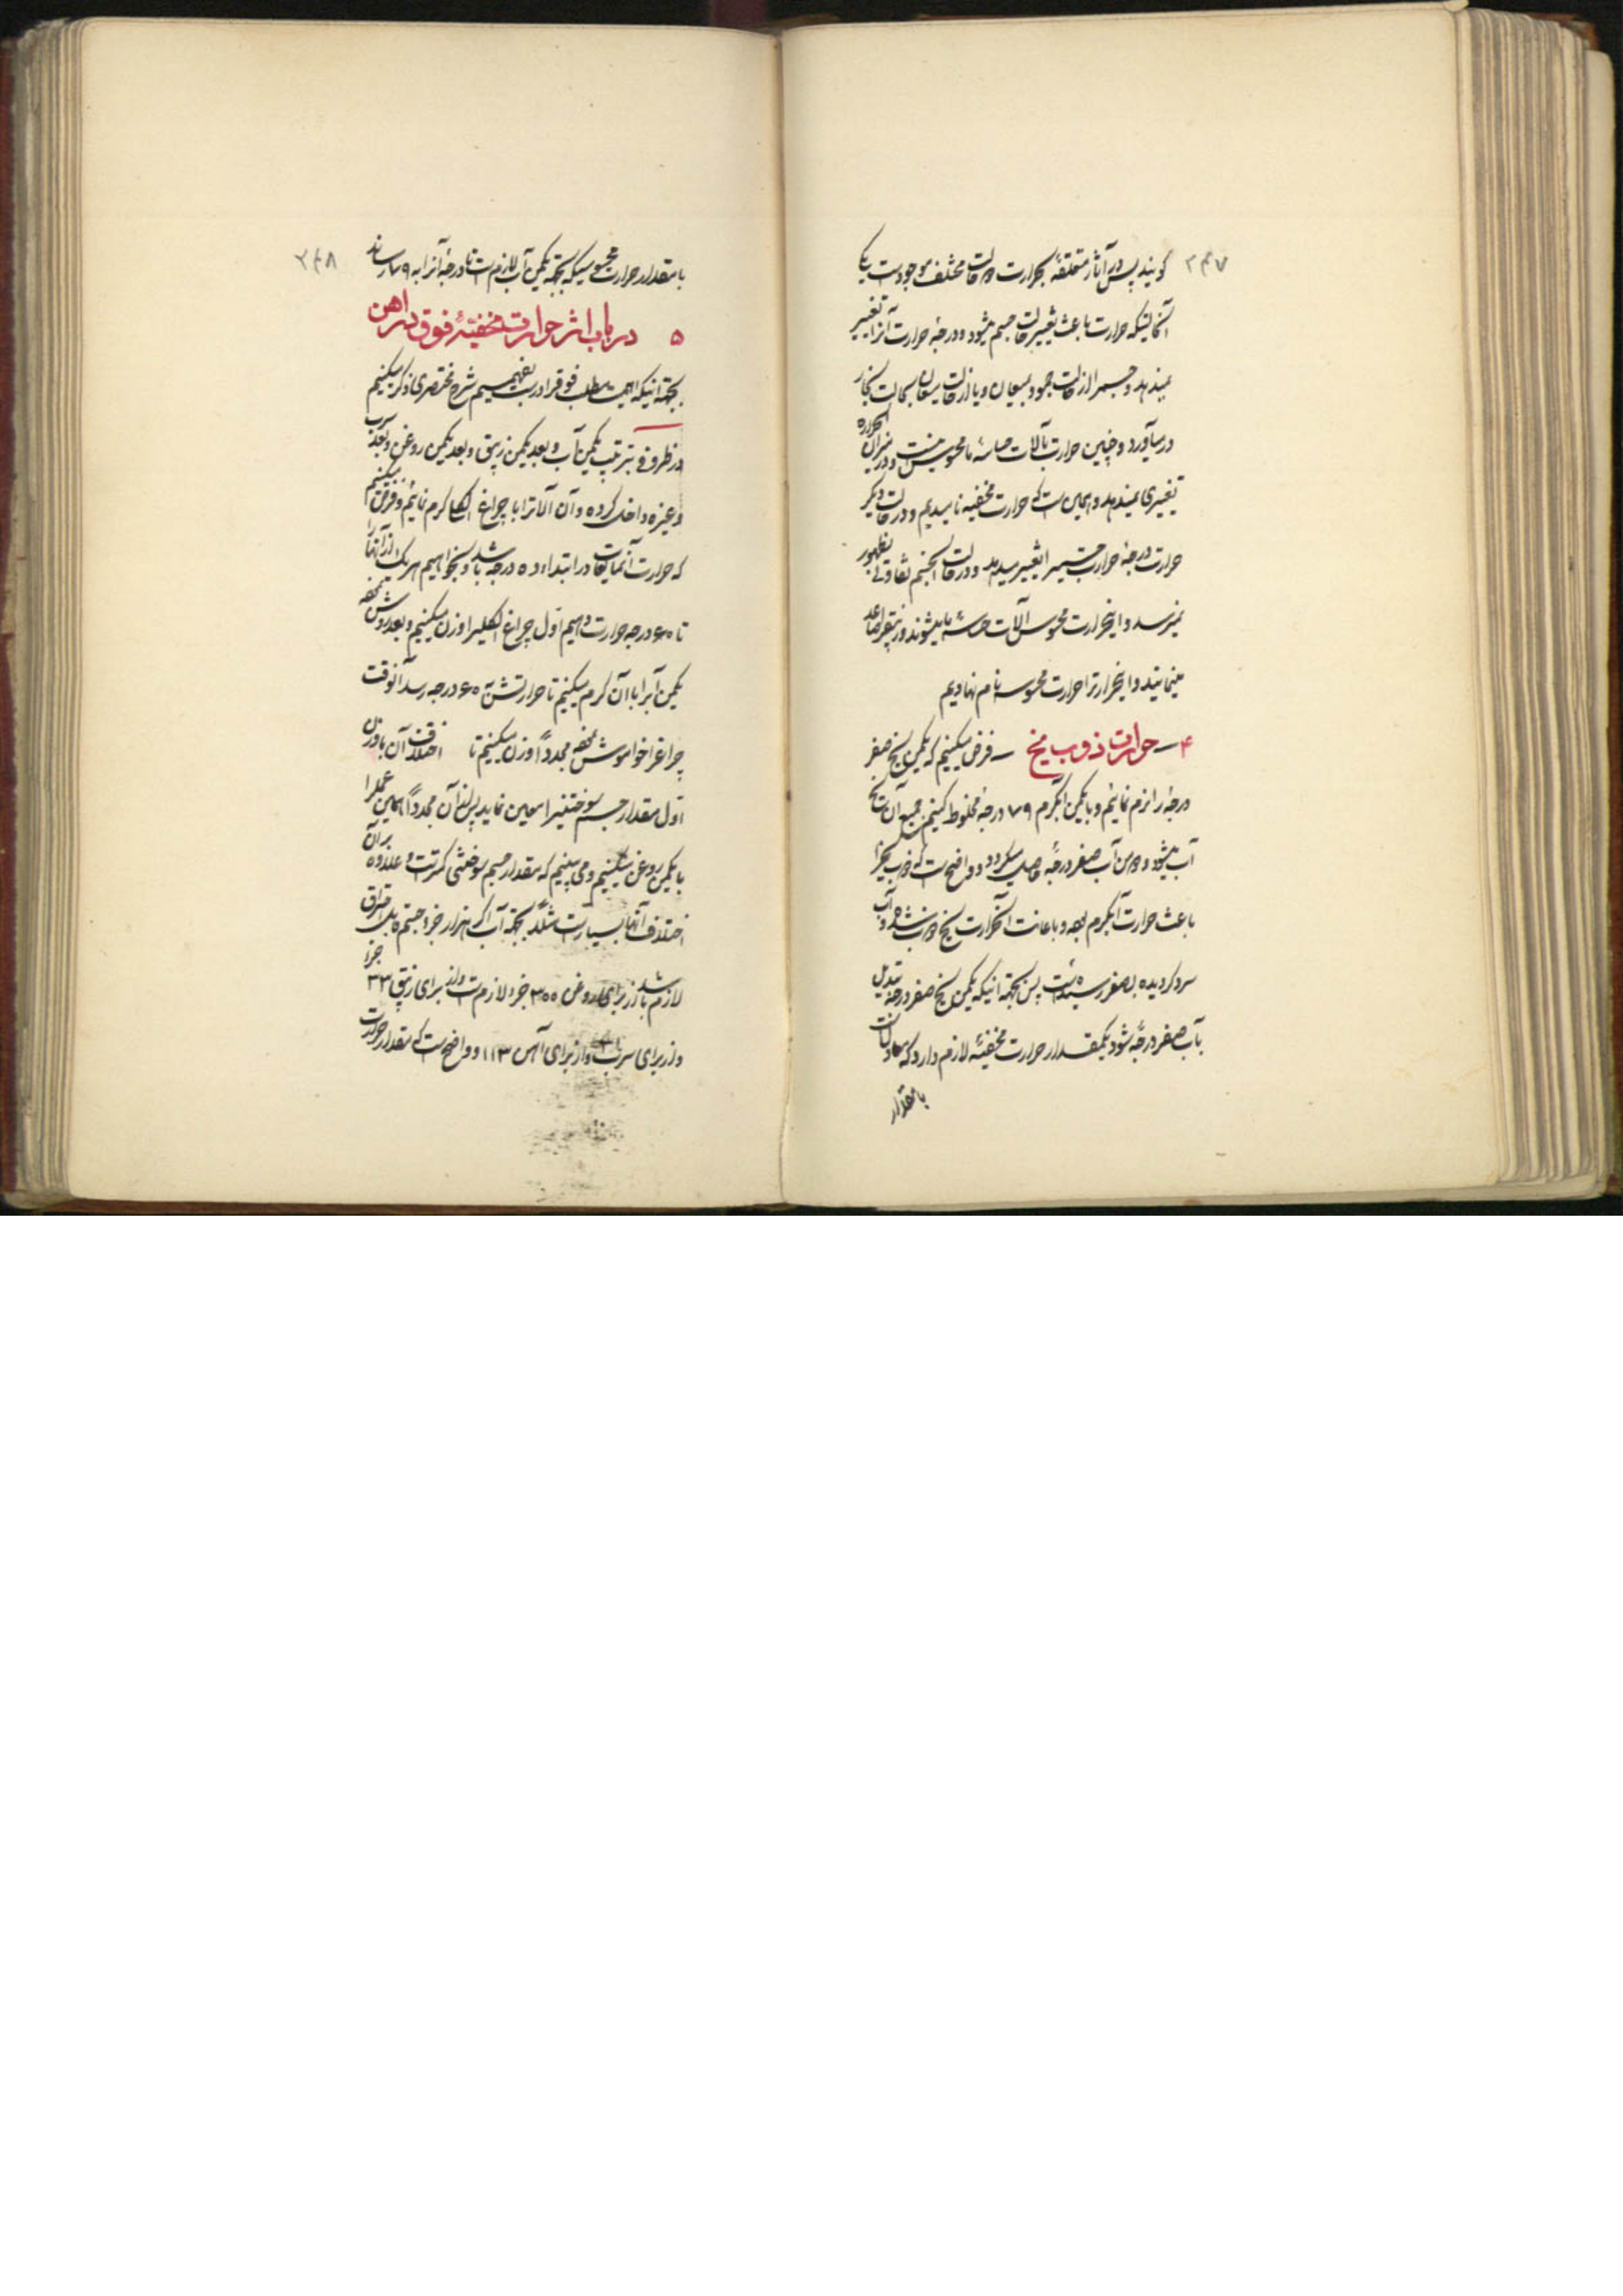 ۲۴۷
گویند پس در آثار متعلقهٔ بحرارت دو حالت مختلف موجودست یکی
آنحالتیکه حرارت باعث تغییر حالت جسم میشود و درجهٔ حرارت آنرا تغییر
نمیدهد و جسمرا از حالت جمود بمیعان و یا از حالت میعان بحالت بخار
در میآورد و چنین حرارت بآلات حاسهٔ ما محسوس نیست و در میزان الحراره
تغییری نمیدهد و همین است که حرارت مخفیه نامیدیم و در حالت دیگر
حرارت درجهٔ حرارت جسم را تغییر میدهد و در حالت آنجسم تفاوتی بظهور
نمیرسد و اینحرارت محسوس آلات حاسهٔ ما میشوند و زیبق را صاعد
مینمایند و اینحرارترا حرارت محسوسه نام نهادیم
۴ – حرارت ذوب یخ – فرض میکنیم که یکمن یخ صفر
درجه را نرم نمائیم و با یکمن آبگرم ۷۹ درجه مخلوط کنیم جمیع آن یخ
آب میشود و دو من آب صفر درجه حاصل میگردد و واضح است که ذوب یخ را
باعث حرارت آبگرم بوده و باعانت آنحرارت یخ ذوب شده و آب
سرد گردیده بصفر رسیده است پس بجهة آنیکه یکمن یخ صفر درجه تبدیل
بآب صفر درجه شود یکمقدار حرارت مخفیهٔ لازم دارد که مساویست
بامقدار
۲۴۸
بامقدار حرارت محسوسیکه بجهة یکمن آب لازم است تا درجهٔ آنرا به ۷۹ رساند
۵ در باب اثر حرارت مخفیهٔ فوق در اهن
بجهة آنیکه اهمیت مطلب فوقرا درست بفهمیم شرح مختصری ذکر میکنیم
در ظروفی بترتیب یکمن آب و بعد یکمن زیبق و بعد یکمن روغن و بعد سرب
و غیره داخل کرده و آن آلاترا با چراغ الکل گرم نمائیم و فرض میکنیم
که حرارت آنمایعات در ابتداء ۵۰ درجه باشد و بخواهیم هر یک از آنها را
تا ۶۰ درجه حرارت دهیم اول چراغ الکلیرا وزن میکنیم و بعد روشن نموده
یکمن آبرا با آن گرم میکنیم تا حرارتش به ۶۰ درجه رسد آنوقت
چراغرا خواموش نموده مجدداً وزن میکنیم تا اختلاف آن با وزن
اول مقدار جسم سوختنیرا معین نماید پس از آن مجدداً همین عملرا
با یکمن روغن میکنیم و می بینیم که مقدار جسم سوختنی کمتر است و علاوه بر آن
اختلاف آنها بسیار است مثلاً بجهة آب اگر هزار جزء جسم قابل احتراق
لازم باشد از برای روغن ۳۰۰ جزء لازم است و از برای زیبق ۳۳ جزء
و از برای سرب ۳۱ و از برای آهن ۱۱۳ و واضح است که مقدار حرارت